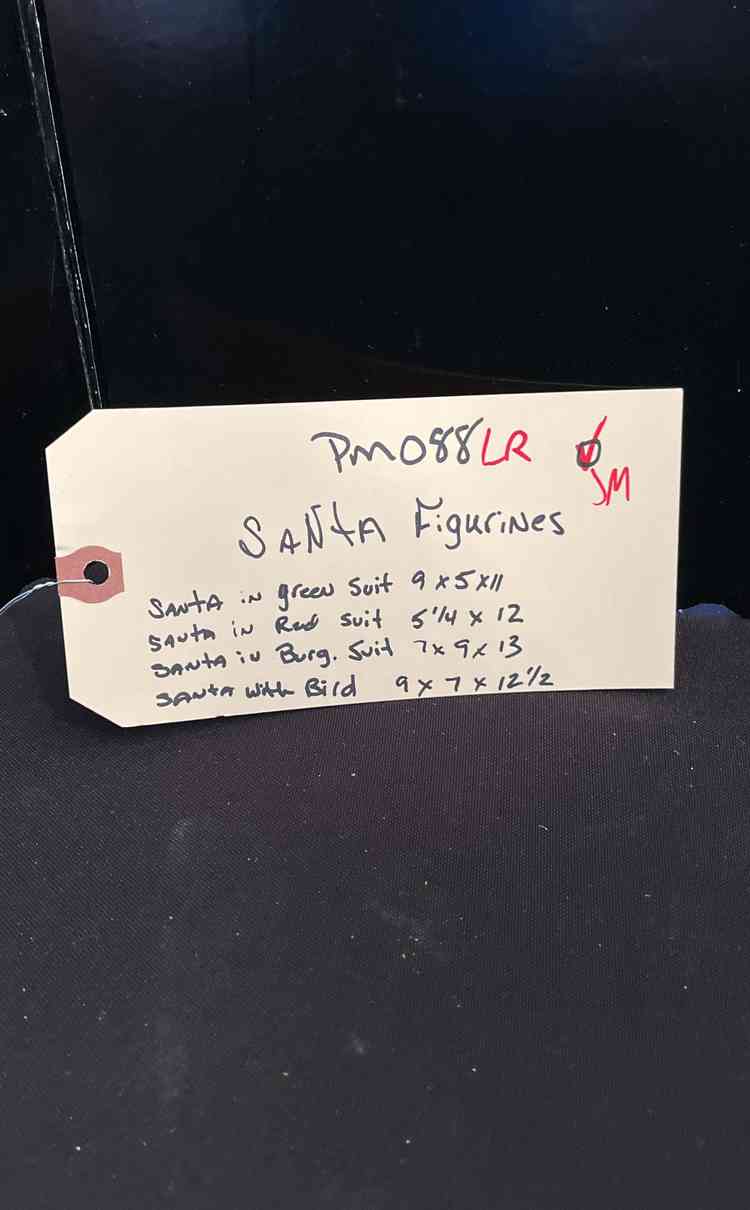 PM088LR
JM
SANtA Figurines
SANTA in green Suit 9 x 5 x 11
SANTA in Red Suit 5 1/4 x 12
SANTA in Burg. Suit 7 x 9 x 13
SANTA With Bird 9 x 7 x 12 1/2